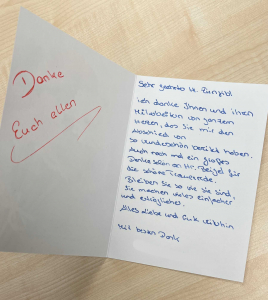 Danke
Euch allen
Sehr geehrter Hr.
ich danke Ihnen und ihren
Mitarbeitern von ganzem
Herzen, das Sie mir den
Abschied von
so wunderschön bereitet haben.
Auch noch mal ein großes
Danke schön an Hr. Beigel für
die schöne Trauerrede.
Bleiben Sie so wie sie sind,
Sie machen vieles einfacher
und erträglicher.
Alles Liebe und Gute weiterhin
Mit besten Dank